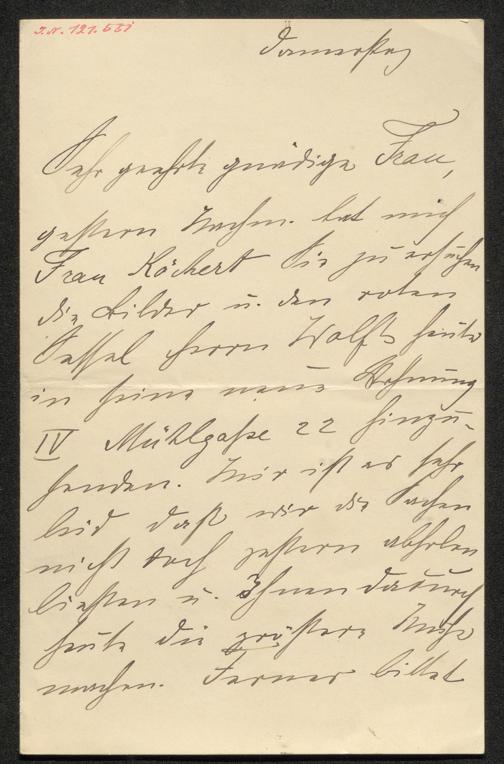 I.N. 121.551
Donnerstag
Sehr geehrte gnädige Frau,
gestern Nachm. bat mich
Frau Köchert Sie zu ersuchen
die Bilder u. den roten
Sessel Herrn Wolfs heute
in seine neue Wohnung
IV Mühlgaße 22 hinzu-
senden. Mir ist es sehr
leid daß wir die Sachen
nicht doch gestern abholen
ließen u. Ihnen dadurch
heute die größere Mühe
machen. Ferner bittet